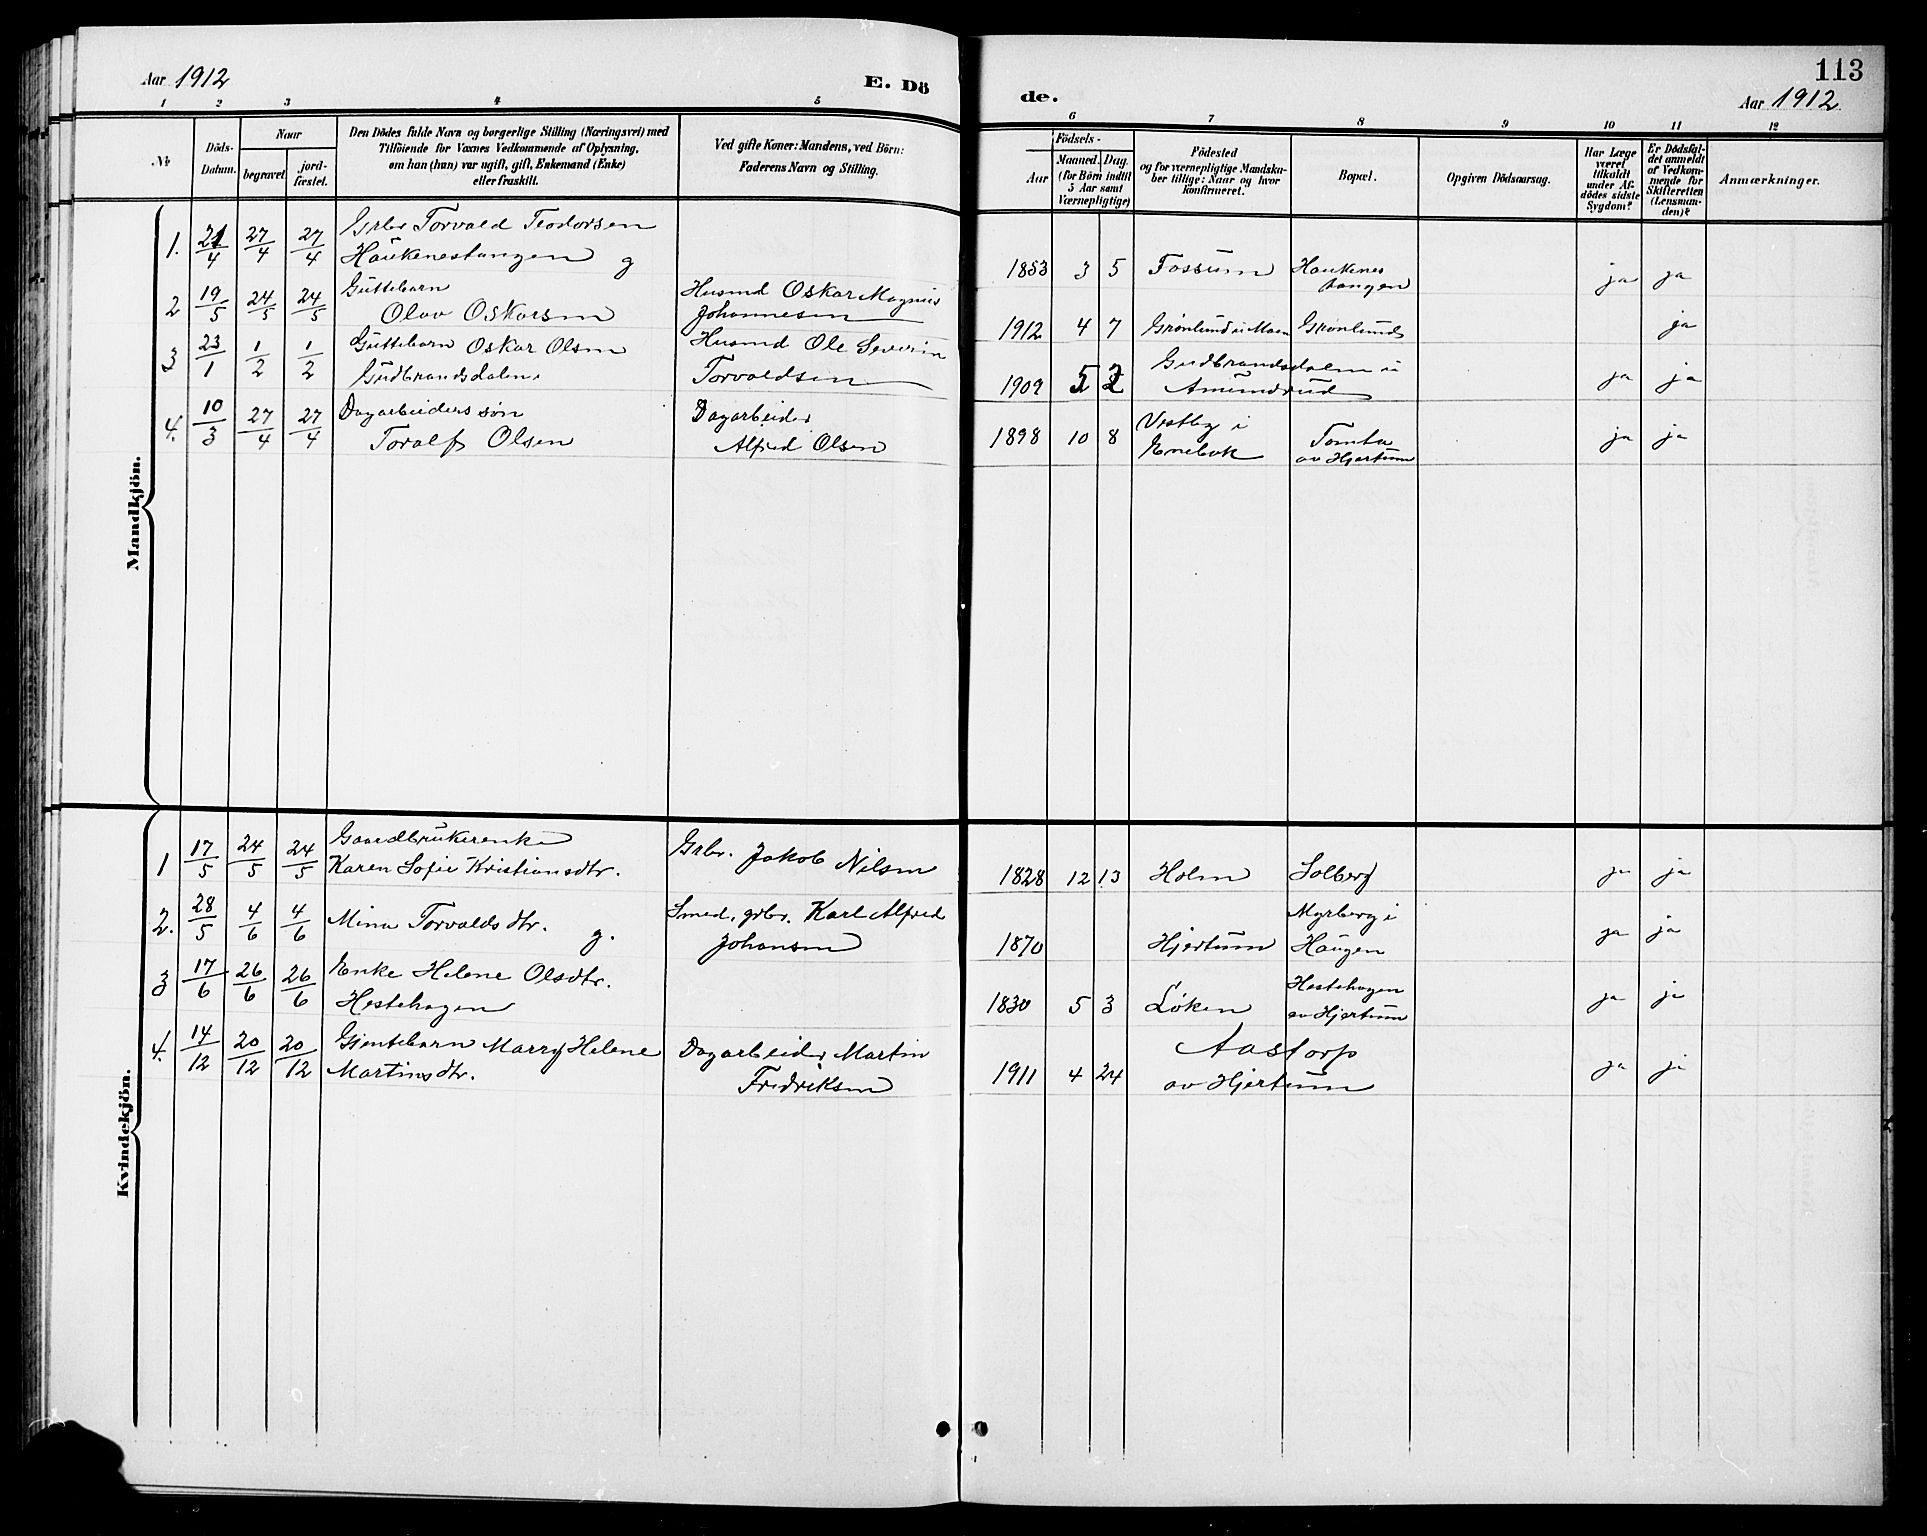 Aar 1912
E. Dö
de.
113
Aar 1912
1 2 3 4 5 6 7 8 9 10 11 12
No
Döds-
Datum.
Naar
begravet
jord-
fæstet.
Den Dödes fulde Navn og borgerlige Stilling (Næringsvei) med
Tilföiende for Voxnes Vedkommende af Oplysning,
om han (hun) var ugift, gift, Enkemand (Enke)
eller fraskilt.
Ved gifte Koner: Mandens, ved Börn:
Faderens Navn og Stilling.
Födsels-
Aar
Maaned. Dag.
(for Börn indtil
5 Aar samt
Værnepligtige)
Födested
og for værnepligtige Mandska-
ber tillige: Naar og hvor
konfirmeret.
Bopæl.
Opgiven Dödsaarsag.
Har Læge
været
tilkaldt
under Af-
dödes sidste
Sygdom?
Er Dödsfal-
det anmeldt
af Vedkom-
mende for
Skifteretten
(Lensman-
den)?
Anmærkninger.
Mandkjön.
1. 21/4 27/4 27/4 Grbr Torvald Teodorsen
Haukenestangen g
1853 3 5 Fossum Haukenes
tangen ja ja
2 19/5 24/5 24/5 Guttebarn
Olav Oskarsen
Husmd Oskar Magnus
Johannesen
1912 4 7 Grønlund u Moen Grønlund ja
3 23/1 1/2 1/2 Guttebarn Oskar Olsen
Gudbrandsdalen.
Husmd Ole Severin
Torvaldsen
1909 5 2 Gudbrandsdalen u
Amundrud ja ja
4. 10/3 27/4 27/4 Dagarbeiders søn
Toralf Olsen
Dagarbeider
Alfred Olsen
1898 10 8 Vestby i
Enebak
Tomta
av Hjertum ja ja
Kvindekjön.
1 17/5 24/5 24/5 Gaardbrukerenke
Karen Sofie Kristiansdtr.
Grbr. Jakob Nilsen
1828 12 13 Holm Solberg ja ja
2. 28/5 4/6 4/6 Mina Torvaldsdtr. g.
Smed, grbr. Karl Alfred
Johansen
1870 Hjertum
Myrberg i
Haugen ja ja
3 17/6 26/6 26/6 Enke Helene Olsdtr.
Hestehagen
1830 5 3 Løken
Hestehagen
av Hjertum ja ja
4. 14/12 20/12 20/12 Gjentebarn Marry Helene
Martinsdtr.
Dagarbeider Martin
Fredriksen
1911 4 24 Aastorp
av Hjertum ja ja